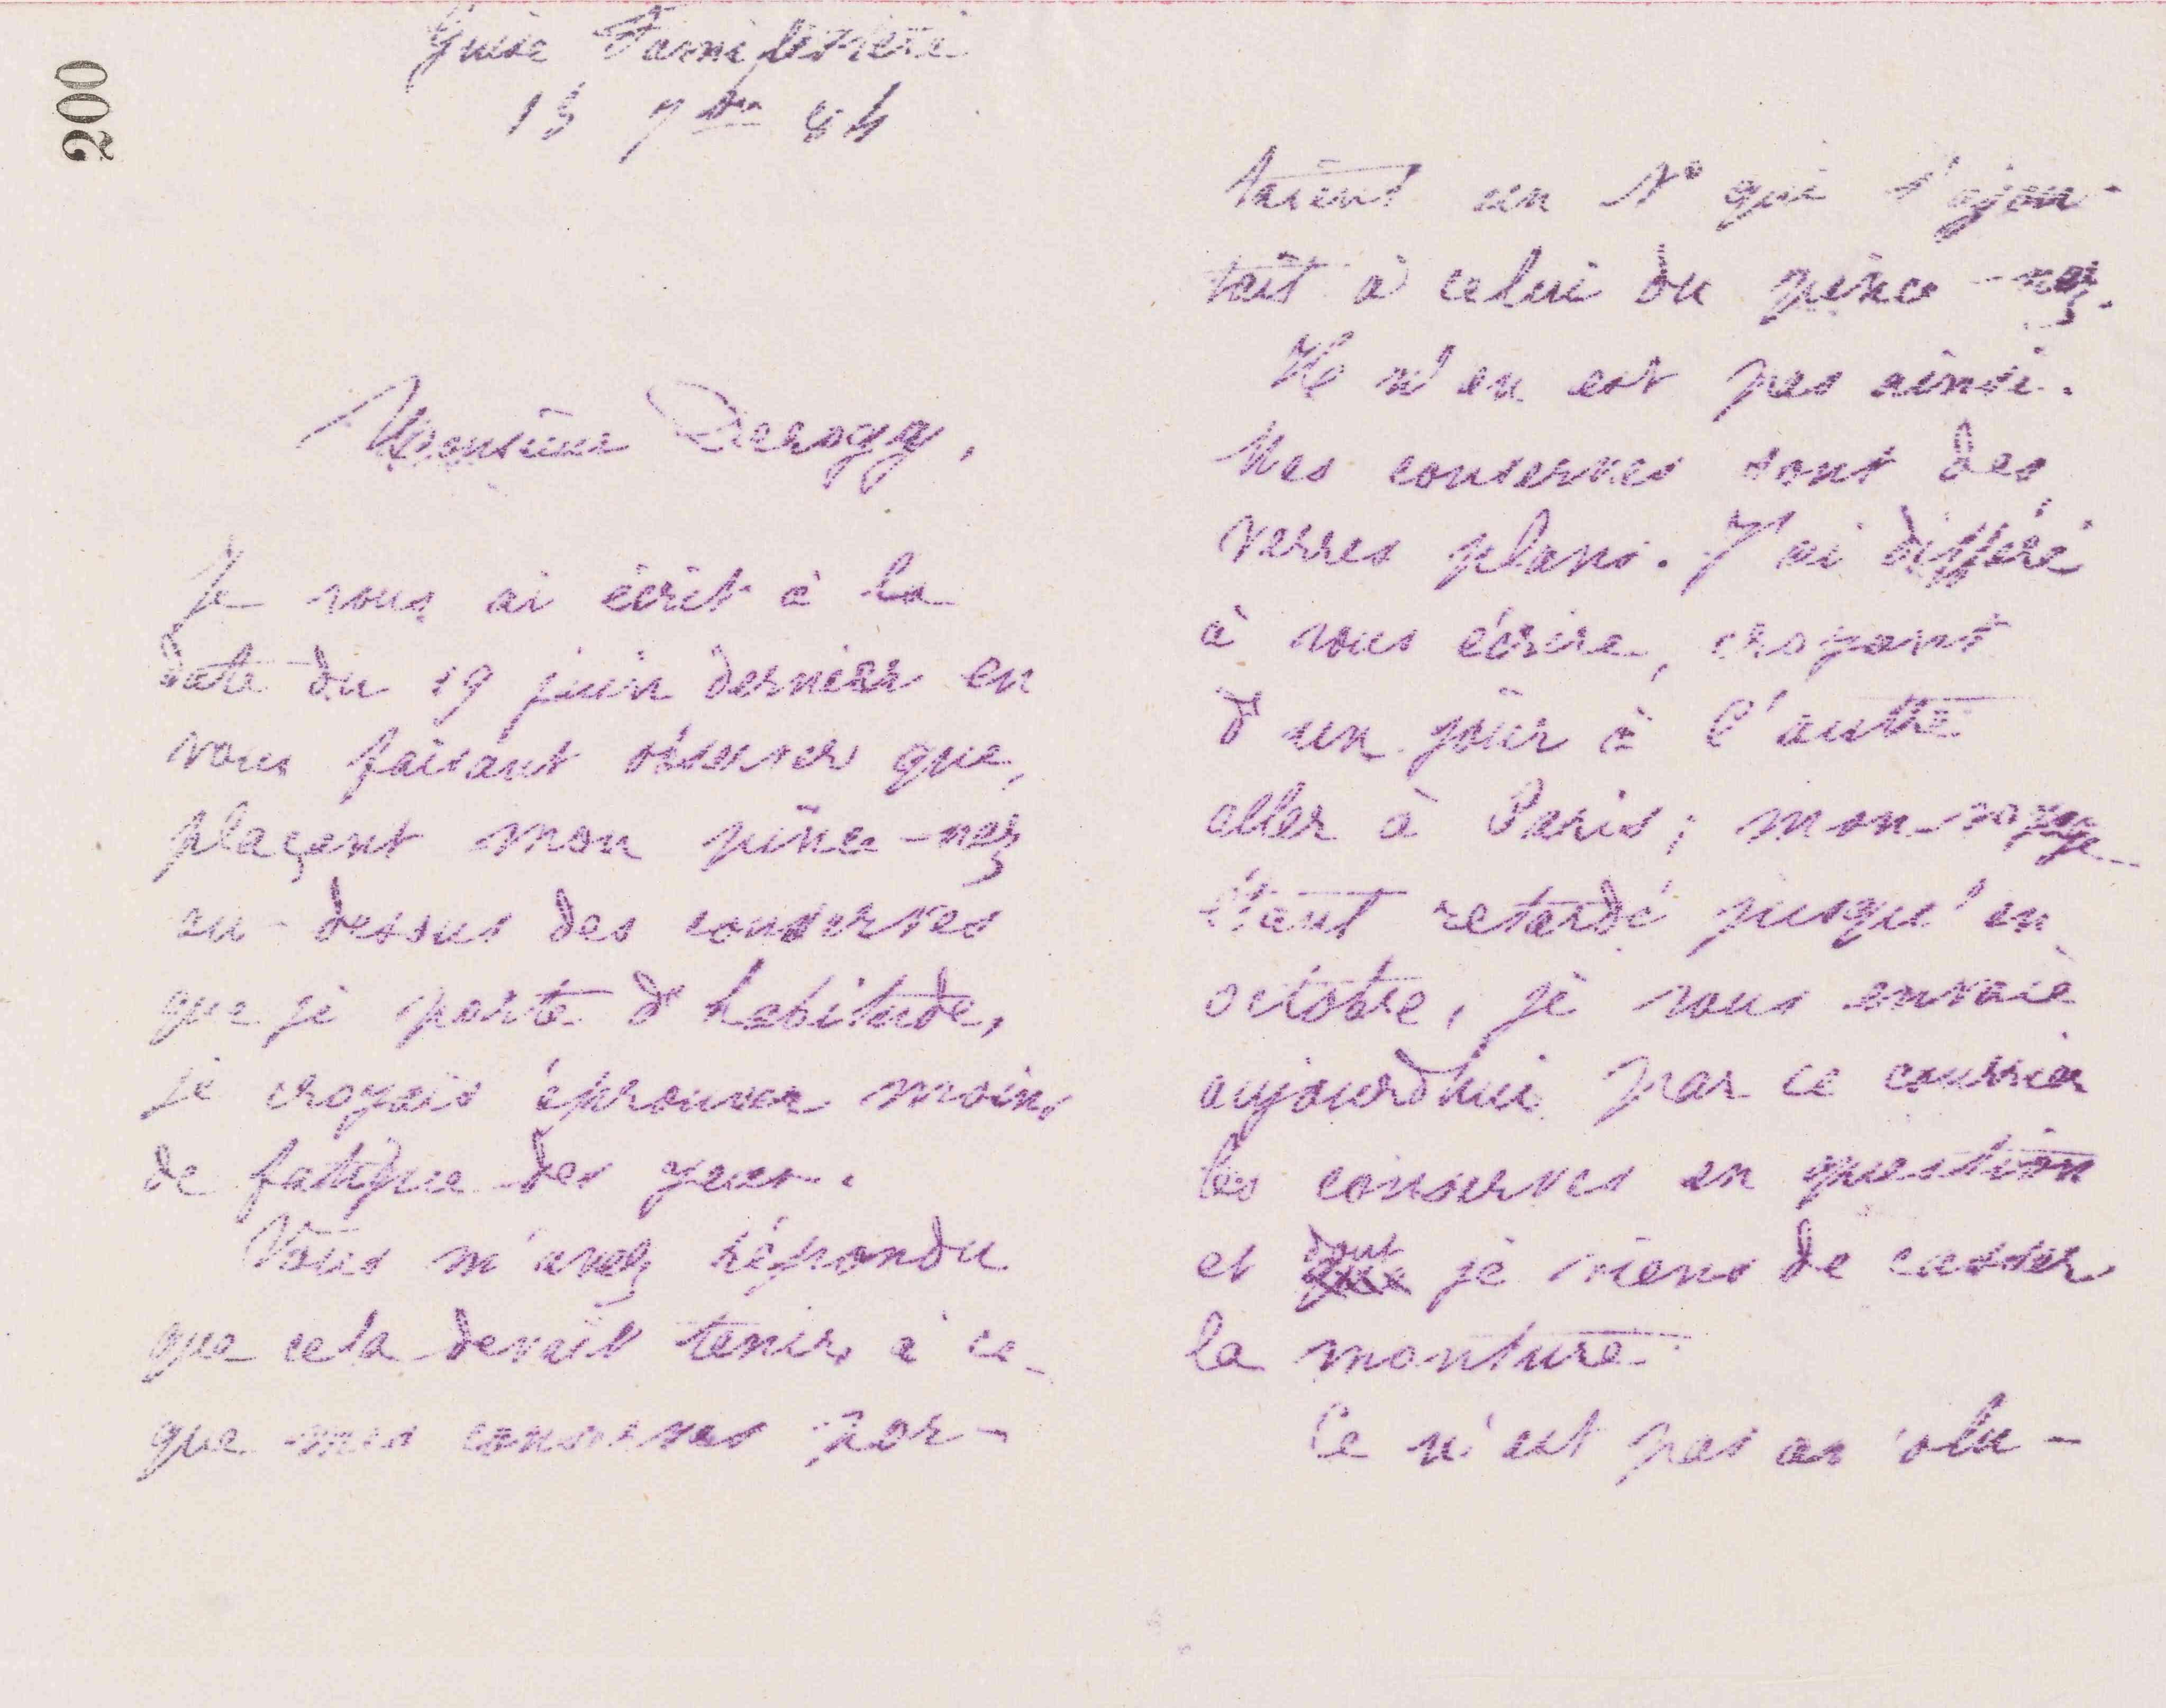 200
Guise Familistère
13 7bre 84
Monsieur Derogy,
Je vous ai écrit à la
date du 19 juin dernier en
vous faisant observer que,
plaçant mon pince-nez
au-dessus des conserves
que je porte d'habitude,
je croyais éprouver moins
de fatigue des yeux.
Vous m'avez répondu
que cela devait tenir à ce
que mes conserves por-
taient un No qui s'ajou-
tait à celui du pince-nez.
Il n'en est pas ainsi.
Mes conserves sont des
verres plans. J'ai différé
à vous écrire, croyant
d'un jour à l'autre
aller à Paris; mon voyage
étant retardé jusqu'en
octobre, je vous envoie
aujourd'hui par ce courrier
les conserves en question
et dont je viens de casser
la monture.
Ce n'est pas